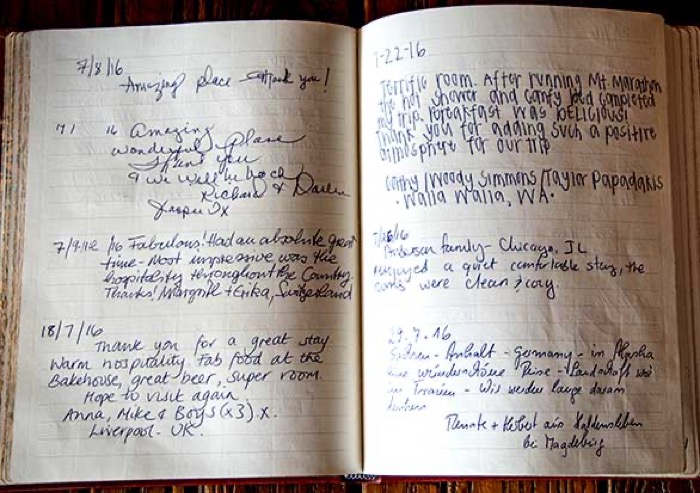 7/8/16
Amazing place - Thank you!
7/ 16 Amazing
wonderful place
Thank you
& we will be back
Richard & Darlen
Jasper Tx
7/9-12 /16 Fabulous! Had an absolute great
time - Most impressive was the
hospitality throughout the Country.
Thanks! Margrith + Erika, Switzerland
18/7/16
Thank you for a great stay
Warm hospitality. Fab food at the
Bakehouse, great beer, super room.
Hope to visit again.
Anna, Mike & Boys (x3). x.
Liverpool - UK.
7-22-16
Terrific room. After running Mt. Marathon
the hot shower and comfy bed completed
my trip. Breakfast was DELICIOUS!
Thank you for adding such a positive
atmosphere for our trip
Cathy/Woody Simmons/Taylor Papadakis
Walla Walla, WA.
Anderson family - Chicago, IL
enjoyed a quiet comfortable stay, the
were clean & cozy.
29.7.16
Sachsen-Anhalt - Germany - in Alaska
eine wunderschöne Reise - Landschaft wie
im Traum - Wir werden lange daran
Renate + Herbert aus Haldensleben
bei Magdeburg